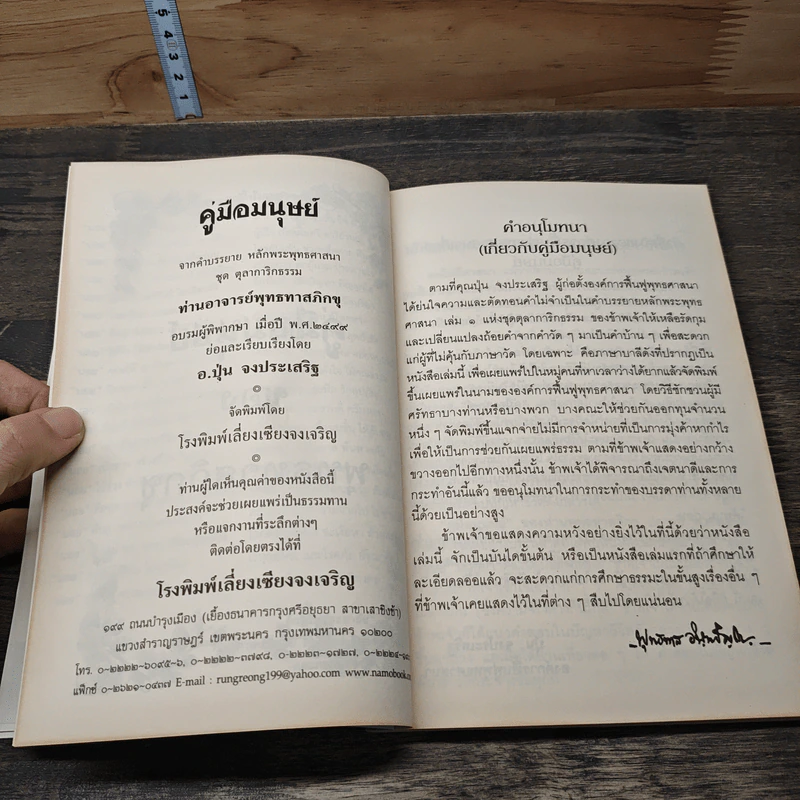 5 4 3 2 1
คู่มือมนุษย์
จากคำบรรยาย หลักพระพุทธศาสนา
ชุด ตุลาการิกธรรม
ท่านอาจารย์พุทธทาสภิกขุ
อบรมผู้พิพากษา เมื่อปี พ.ศ.๒๔๙๙
ย่อและเรียบเรียงโดย
อ.ปุ่น จงประเสริฐ
จัดพิมพ์โดย
โรงพิมพ์เลี่ยงเซียงจงเจริญ
ท่านผู้ใดเห็นคุณค่าของหนังสือนี้
ประสงค์จะช่วยเผยแพร่เป็นธรรมทาน
หรือแจกงานที่ระลึกต่างๆ
ติดต่อโดยตรงได้ที่
โรงพิมพ์เลี่ยงเซียงจงเจริญ
๑๙๙ ถนนบำรุงเมือง (เยื้องธนาคารกรุงศรีอยุธยา สาขาเสาชิงช้า)
แขวงสำราญราษฎร์ เขตพระนคร กรุงเทพมหานคร ๑๐๒๐๐
โทร. ๐-๒๒๒๒-๖๐๙๕-๖, ๐-๒๒๒๒-๓๗๙๘, ๐-๒๒๒๓-๑๗๒๗,
แฟ็กซ์ ๐-๒๖๒๑-๐๔๓๗ E-mail : rungreong199@yahoo.com
คำอนุโมทนา
(เกี่ยวกับคู่มือมนุษย์)
ตามที่คุณปุ่น จงประเสริฐ ผู้ก่อตั้งองค์การฟื้นฟูพุทธศาสนา
ได้ย่นใจความและตัดทอนคำไม่จำเป็นในคำบรรยายหลักพระพุทธ
ศาสนา เล่ม ๑ แห่งชุดตุลาการิกธรรม ของข้าพเจ้าให้เหลือรัดกุม
และเปลี่ยนแปลงถ้อยคำจากคำวัด ๆ มาเป็นคำบ้าน ๆ เพื่อสะดวก
แก่ผู้ที่ไม่คุ้นกับภาษาวัด โดยเฉพาะ คือภาษาบาลีดังที่ปรากฏเป็น
หนังสือเล่มนี้ เพื่อเผยแพร่ไปในหมู่คนที่หาเวลาว่างได้ยากแล้วจัดพิมพ์
ขึ้นเผยแพร่ในนามขององค์การฟื้นฟูพุทธศาสนา โดยวิธีชักชวนผู้มี
ศรัทธาบางท่านหรือบางพวก บางคณะให้ช่วยกันออกทุนจำนวน
หนึ่ง ๆ จัดพิมพ์ขึ้นแจกจ่ายไม่มีการจำหน่ายที่เป็นการมุ่งค้าหากำไร
เพื่อให้เป็นการช่วยกันเผยแพร่ธรรม ตามที่ข้าพเจ้าแสดงอย่างกว้าง
ขวางออกไปอีกทางหนึ่งนั้น ข้าพเจ้าได้พิจารณาถึงเจตนาดีและการ
กระทำอันนี้แล้ว ขออนุโมทนาในการกระทำของบรรดาท่านทั้งหลาย
นี้ด้วยเป็นอย่างสูง
ข้าพเจ้าขอแสดงความหวังอย่างยิ่งไว้ในที่นี้ด้วยว่าหนังสือ
เล่มนี้ จักเป็นบันไดขั้นต้น หรือเป็นหนังสือเล่มแรกที่ถ้าศึกษาให้
ละเอียดลออแล้ว จะสะดวกแก่การศึกษาธรรมะในขั้นสูงเรื่องอื่น ๆ
ที่ข้าพเจ้าเคยแสดงไว้ในที่ต่าง ๆ สืบไปโดยแน่นอน
พุทธทาส อินทปัญโญ